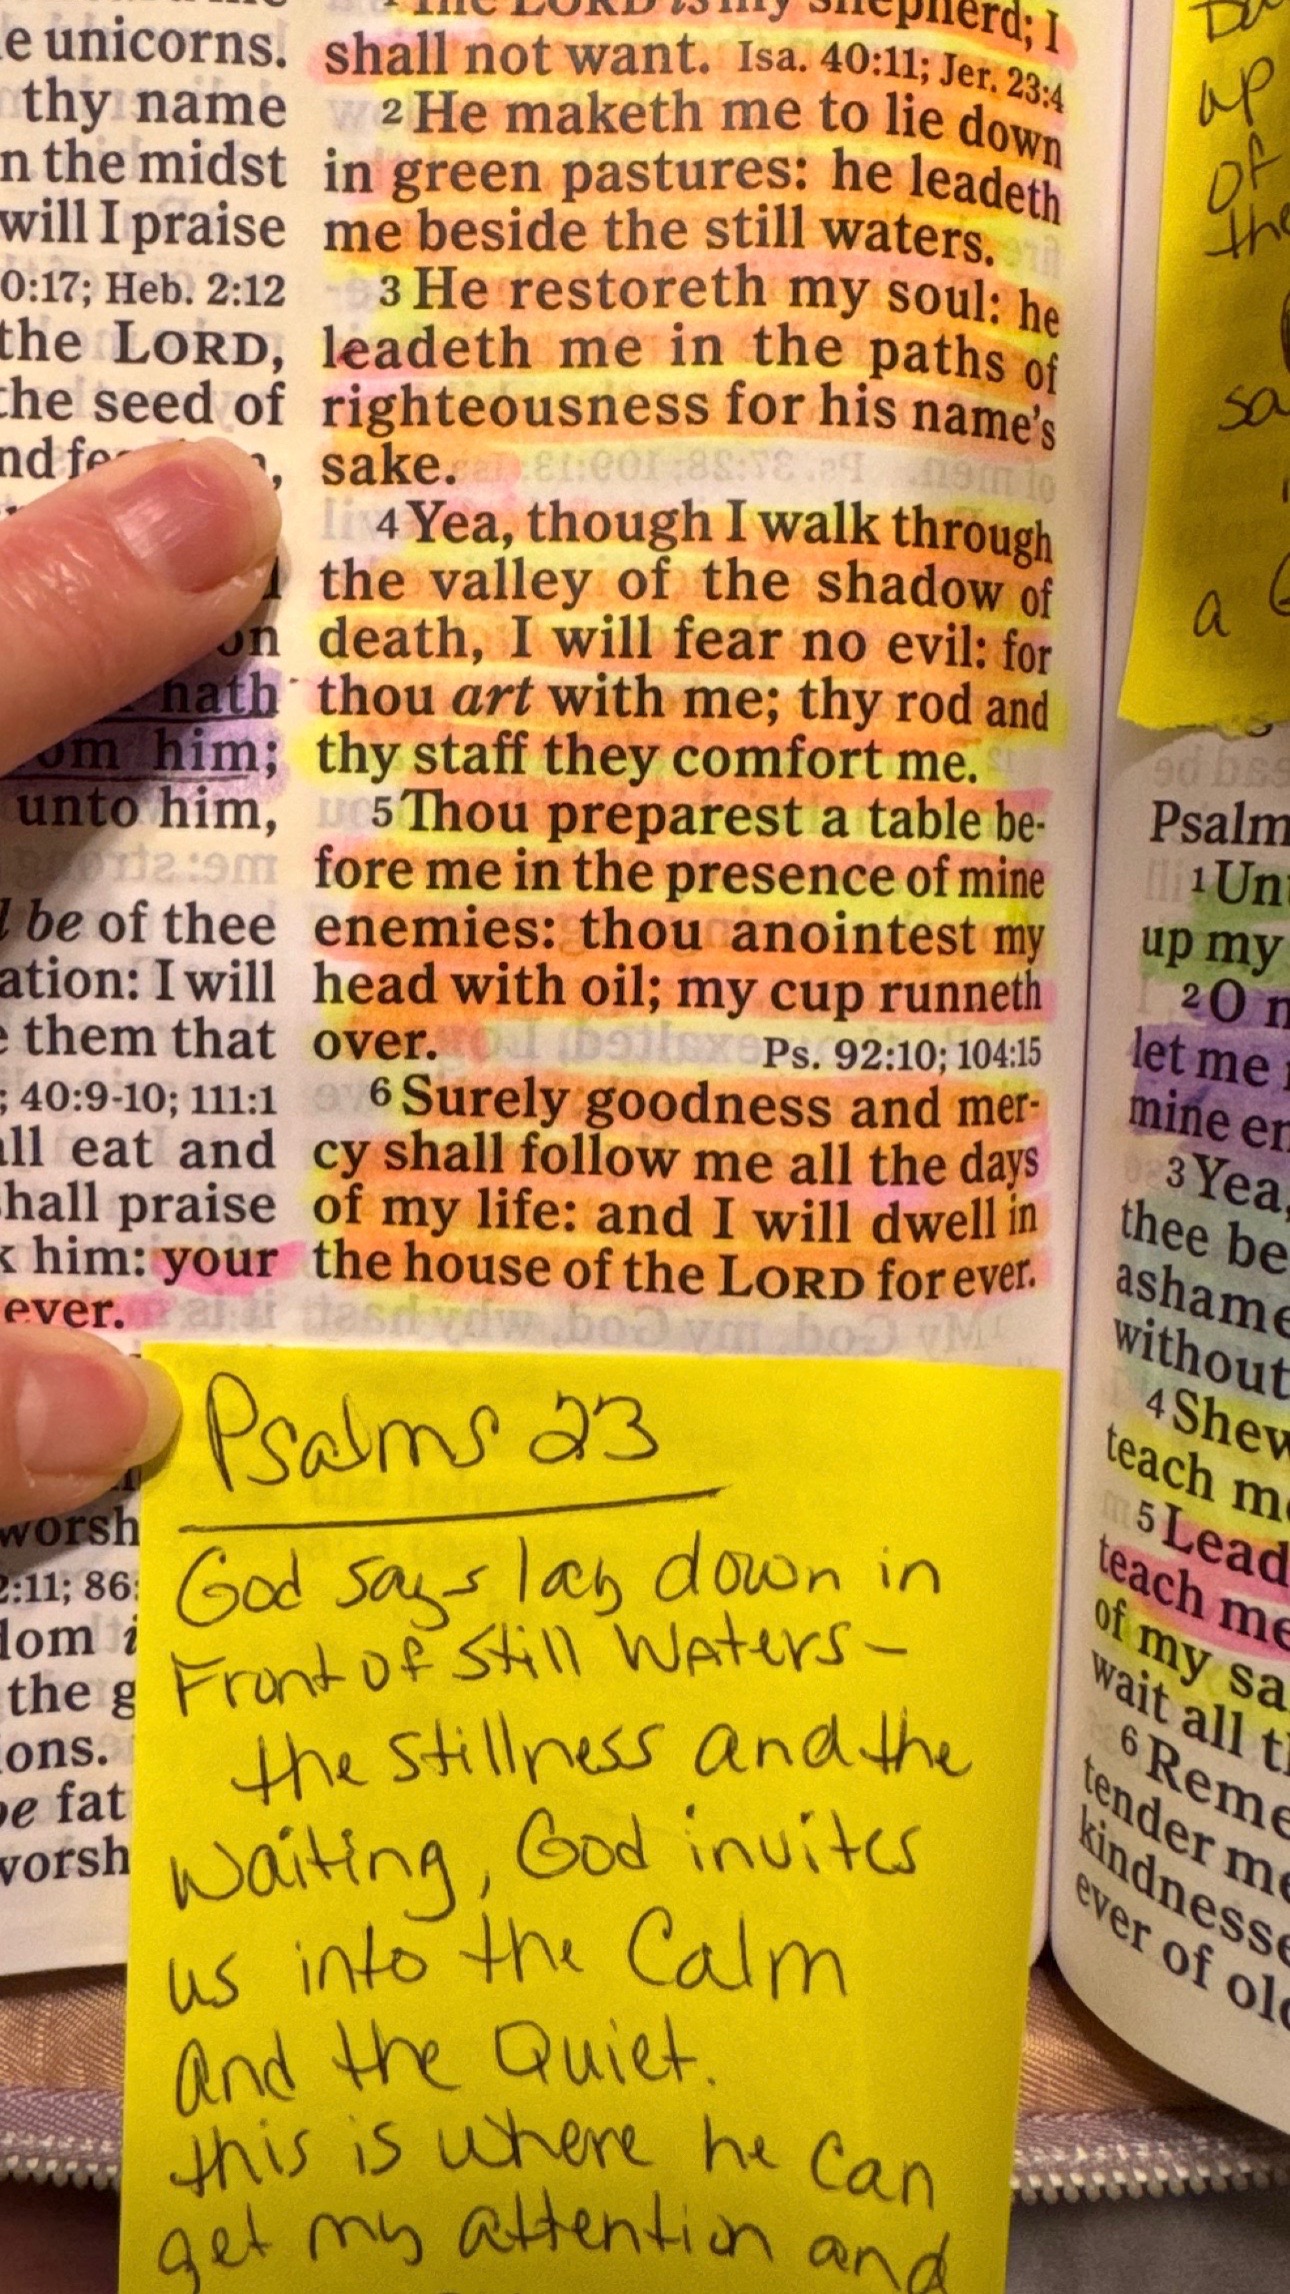 e unicorns.
thy name
n the midst
will I praise
0:17; Heb. 2:12
the LORD,
the seed of
nd
,
on
hath
om him;
unto him,
be of thee
ation: I will
them that
; 40:9-10; 111:1
all eat and
hall praise
k him: your
ever.
worsh
2:11; 86:
dom i
the g
ions.
be fat
worsh
The LORD is my shepherd; I
shall not want. Isa. 40:11; Jer. 23:4
2 He maketh me to lie down
in green pastures: he leadeth
me beside the still waters.
3 He restoreth my soul: he
leadeth me in the paths of
righteousness for his name's
sake.
4 Yea, though I walk through
the valley of the shadow of
death, I will fear no evil: for
thou art with me; thy rod and
thy staff they comfort me.
5 Thou preparest a table be-
fore me in the presence of mine
enemies: thou anointest my
head with oil; my cup runneth
over. Ps. 92:10; 104:15
6 Surely goodness and mer-
cy shall follow me all the days
of my life: and I will dwell in
the house of the LORD for ever.
Psalms 23
God says lay down in
Front of Still Waters-
the stillness and the
Waiting, God invites
us into the Calm
and the Quiet.
this is where he can
get my attention and
up
of
the
sa
a
Psalm
1 Un
up my
2 O m
let me
mine en
3 Yea,
thee be
ashame
without
4 Shew
teach me
5 Lead
teach me
of my sa
wait all t
6 Reme
tender me
kindnesse
ever of old